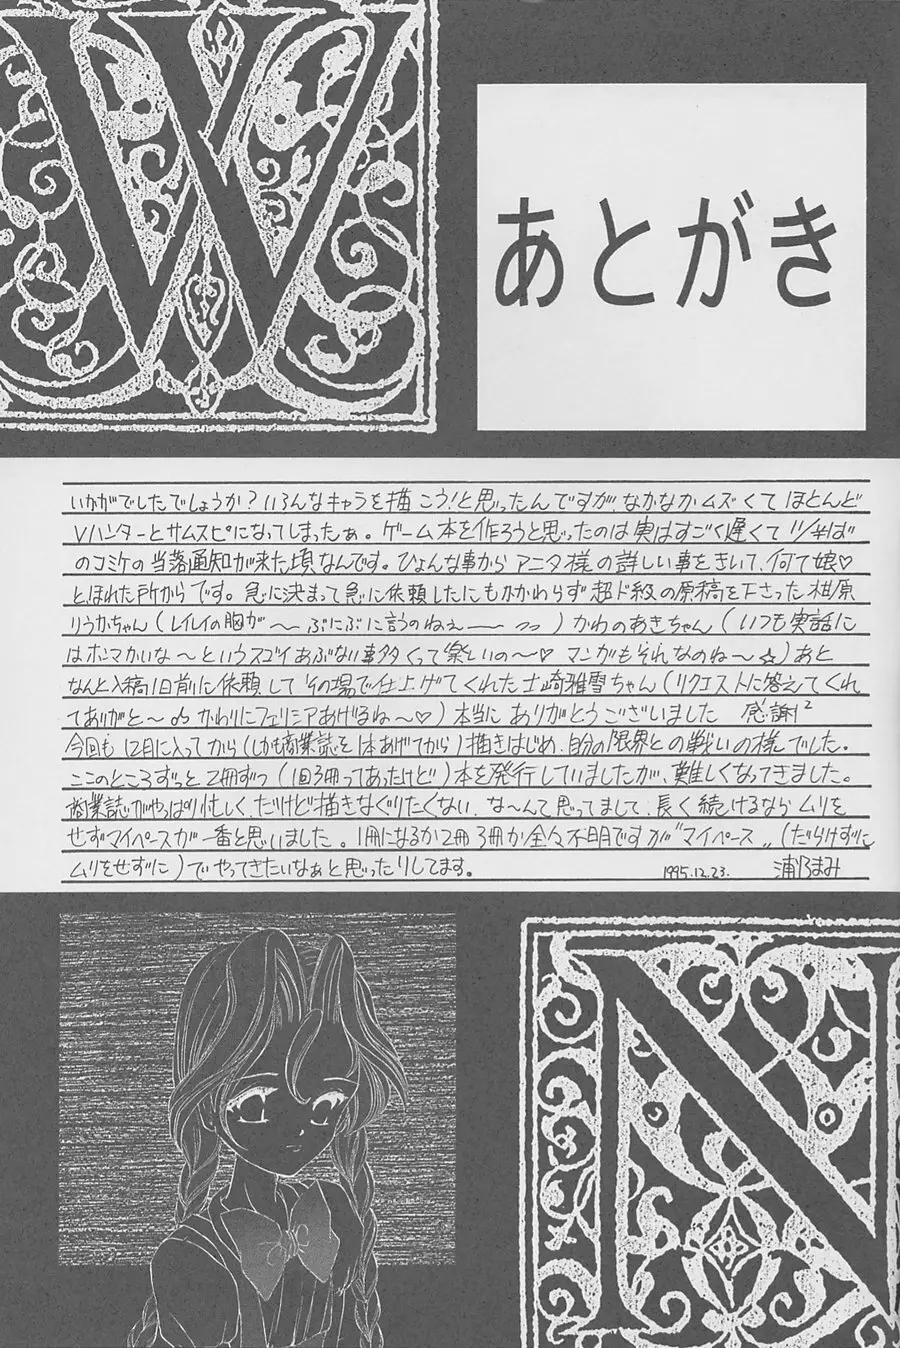 W
あとがき
いかがでしたでしょうか?いろんなキャラを描こう!と思ったんですが なかなかムズくて ほとんど
Vハンターとサムスピになってしまったぁ。ゲーム本を作ろうと思ったのは実はすごく遅くて11/半ば
のコミケの当落通知が来た頃なんです。ひょんな事からアニタ様の詳しい事をきいて、何て娘♡
とほれた所からです。急に決まって急に依頼したにもかかわらず超ド級の原稿を下さった 原
りうかちゃん(レイレイの胸が〜ぷにぷに言うのねぇ〜)かわのあきちゃん(いつも実話に
はホンマかいな〜というスゴイあぶない事多くって楽しいの〜♡ マンガもそれなのね〜☆)あと
なんと入稿1日前に依頼して その場で仕上げてくれた士崎雅雪ちゃん(リクエストに答えてくれ
てありがと〜♪ かわりにフェリシアあげるね〜♡)本当に ありがとうございました 感謝²
今回も12月に入ってから(しかも商業誌を1本あげてから)描きはじめ、自分の限界との戦いの様でした。
ここのところずっと2冊ずつ(1回3冊ってあったけど)本を発行していましたが、難しくなってきました。
商業誌がやっぱり忙しく、だけど描きなぐりたくない、な〜んて思ってまして、長く続けるならムリを
せずマイペースが一番と思いました。1冊になるか2冊3冊か全々不明ですが"マイペース"(だらけずに
ムリをせずに)でやってきたいなぁと思ったりしてます。
1995.12.23. 浦乃まみ
N